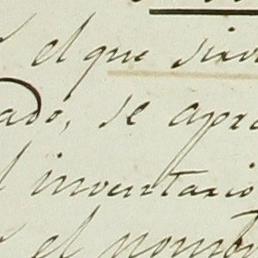 el que sirv
ado, se apro
l inventario
el nomb